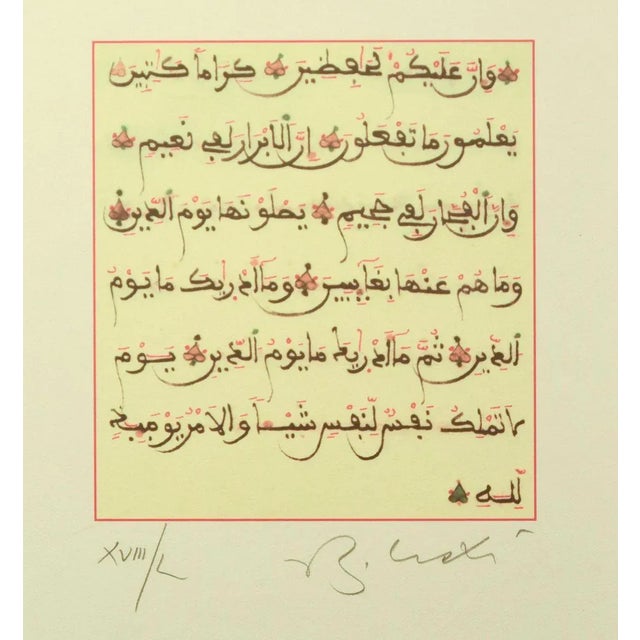 وَإِنَّ عَلَيْكُمْ لَحَٰفِظِينَ كِرَامًا كَٰتِبِينَ
يَعْلَمُونَ مَا تَفْعَلُونَ إِنَّ ٱلْأَبْرَارَ لَفِى نَعِيمٍ
وَإِنَّ ٱلْفُجَّارَ لَفِى جَحِيمٍ يَصْلَوْنَهَا يَوْمَ ٱلدِّينِ
وَمَا هُمْ عَنْهَا بِغَآئِبِينَ وَمَآ أَدْرَىٰكَ مَا يَوْمُ
ٱلدِّينِ ثُمَّ مَآ أَدْرَىٰكَ مَا يَوْمُ ٱلدِّينِ يَوْمَ
لَا تَمْلِكُ نَفْسٌ لِّنَفْسٍ شَيْـًٔا وَٱلْأَمْرُ يَوْمَئِذٍ
لِّلَّهِ
XVIII/L